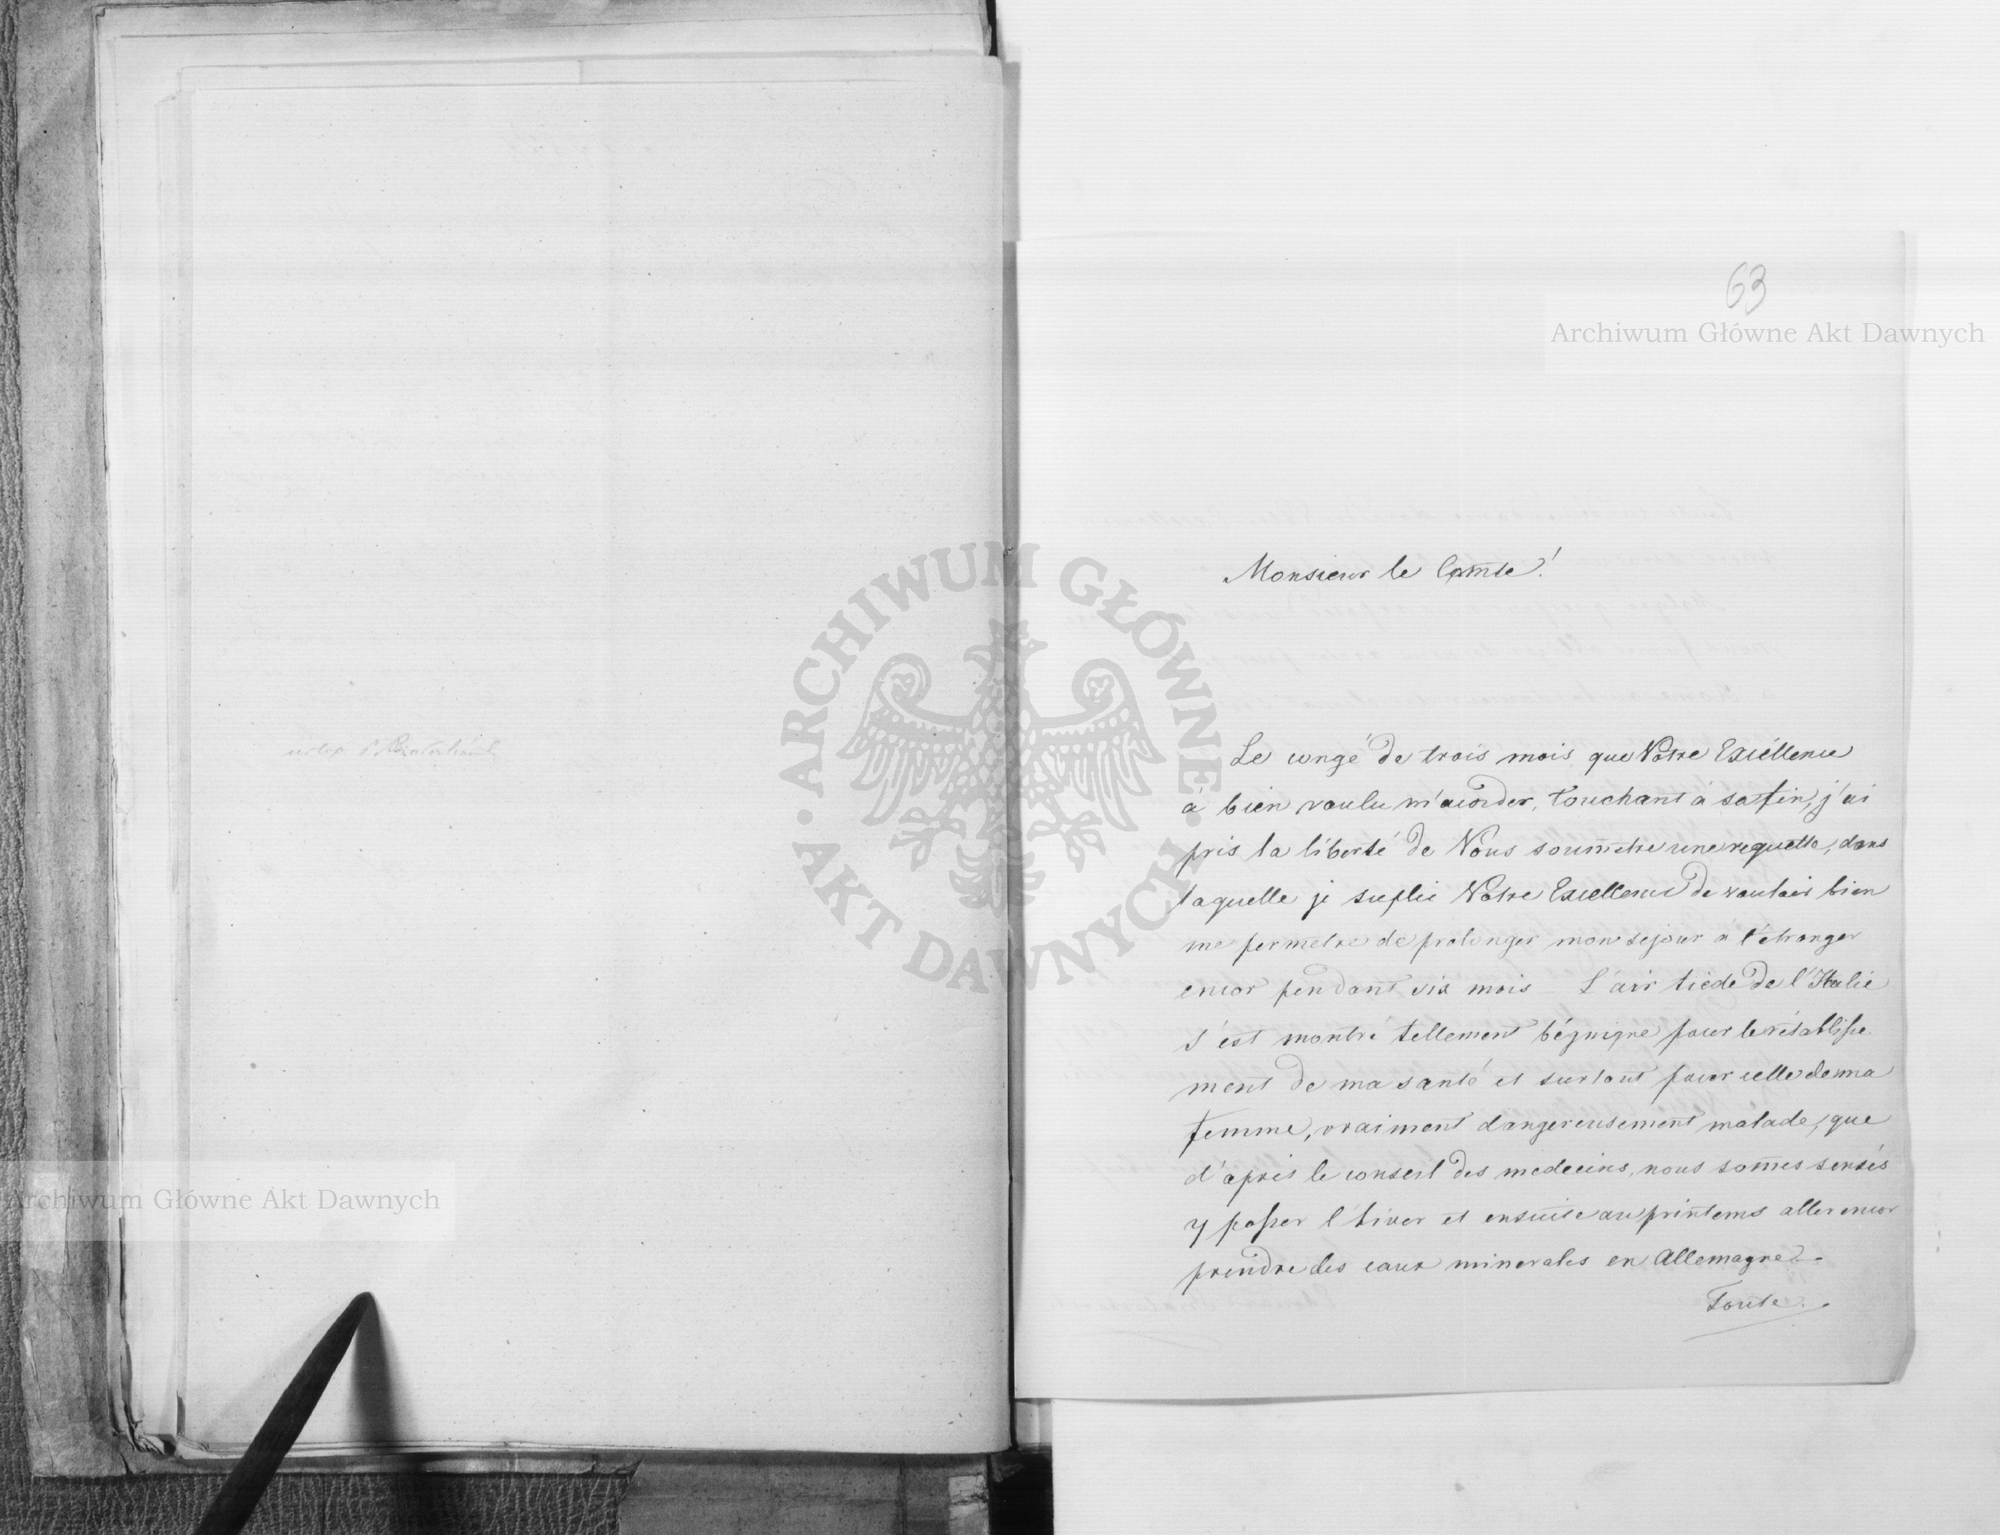 63
Archiwum Główne Akt Dawnych
Monsieur le Comte!
Le congé de trois mois que Votre Excéllence
à bien voulu m'accorder, touchant à sa fin, j'ai
pris la liberté de Vous soumetre une requette, dans
laquelle je suplie Votre Excellence de vouloir bien
me permetre de prolonger mon sejour à l'étranger
encor pendant six mois L'air tiède de l'Italie
s'est montré tellement béguigne pour le rétablisse
ment de ma santé et surtout pour celle de ma
femme, vraiment dangereusement malade, que
d'après le conseil des medecins, nous somes sensés
y passer l'hiver et ensuite au printems aller encor
prendre les eaux minerales en Allemagne.
Toute
ARCHIWUM GŁÓWNE
AKT DAWNYCH
Archiwum Główne Akt Dawnych